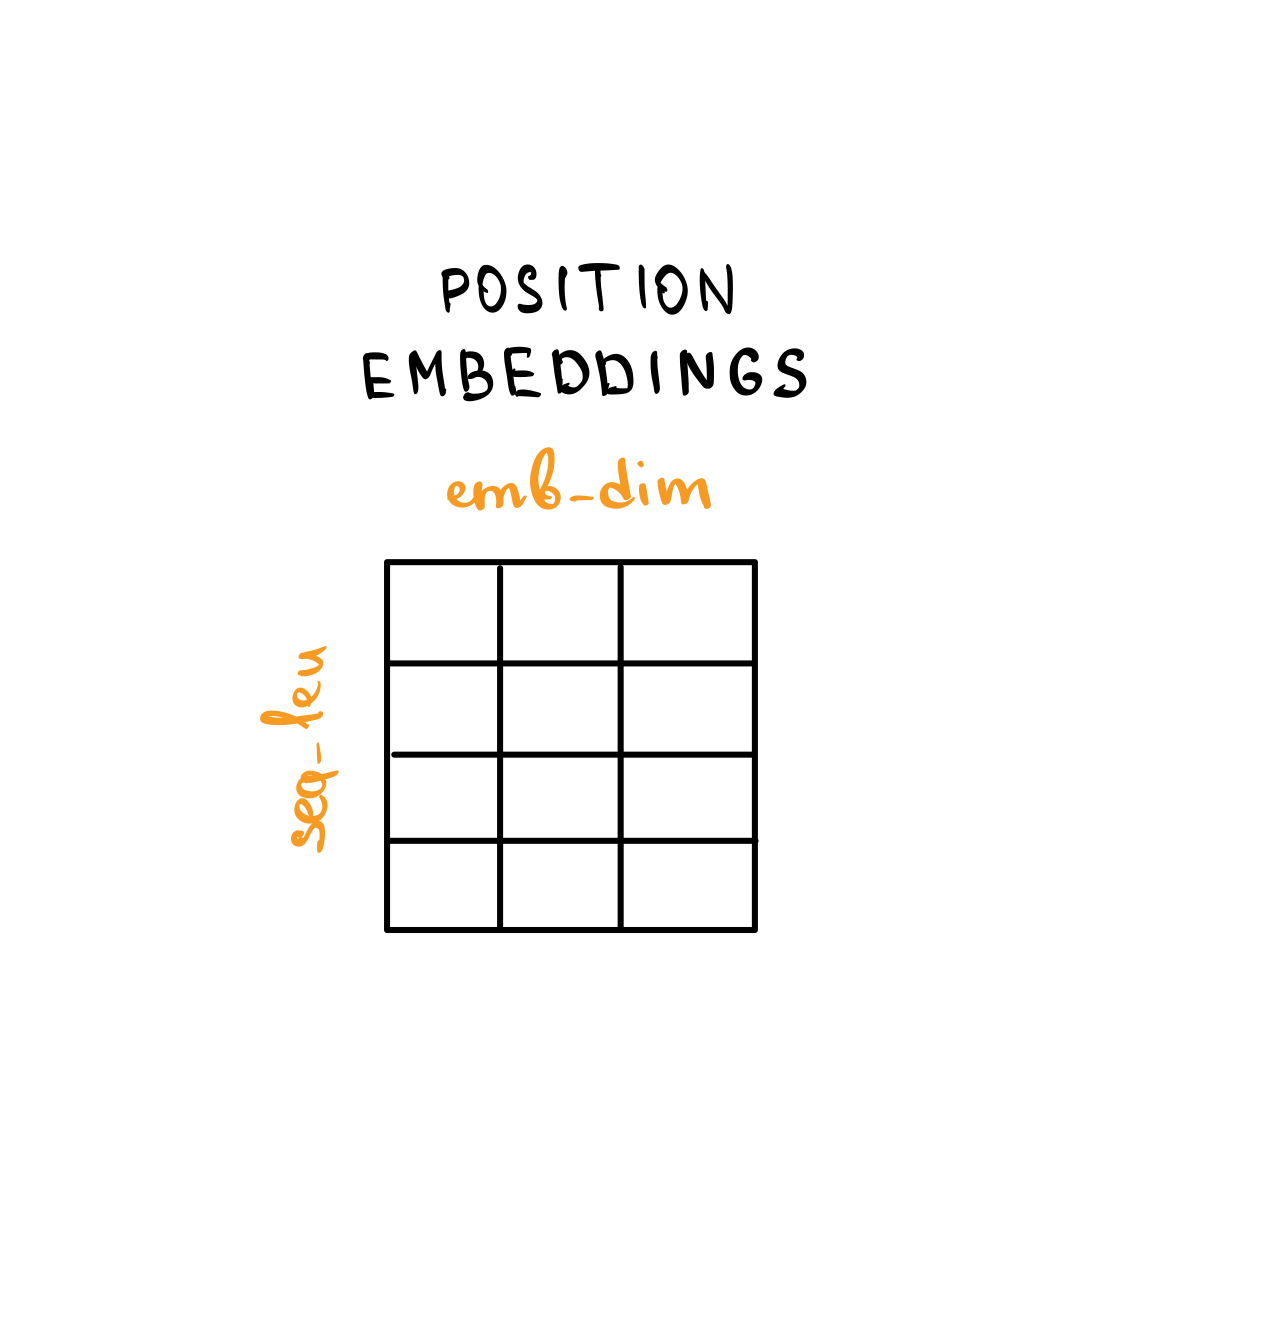 POSITION
EMBEDDINGS
emb-dim
seq-len